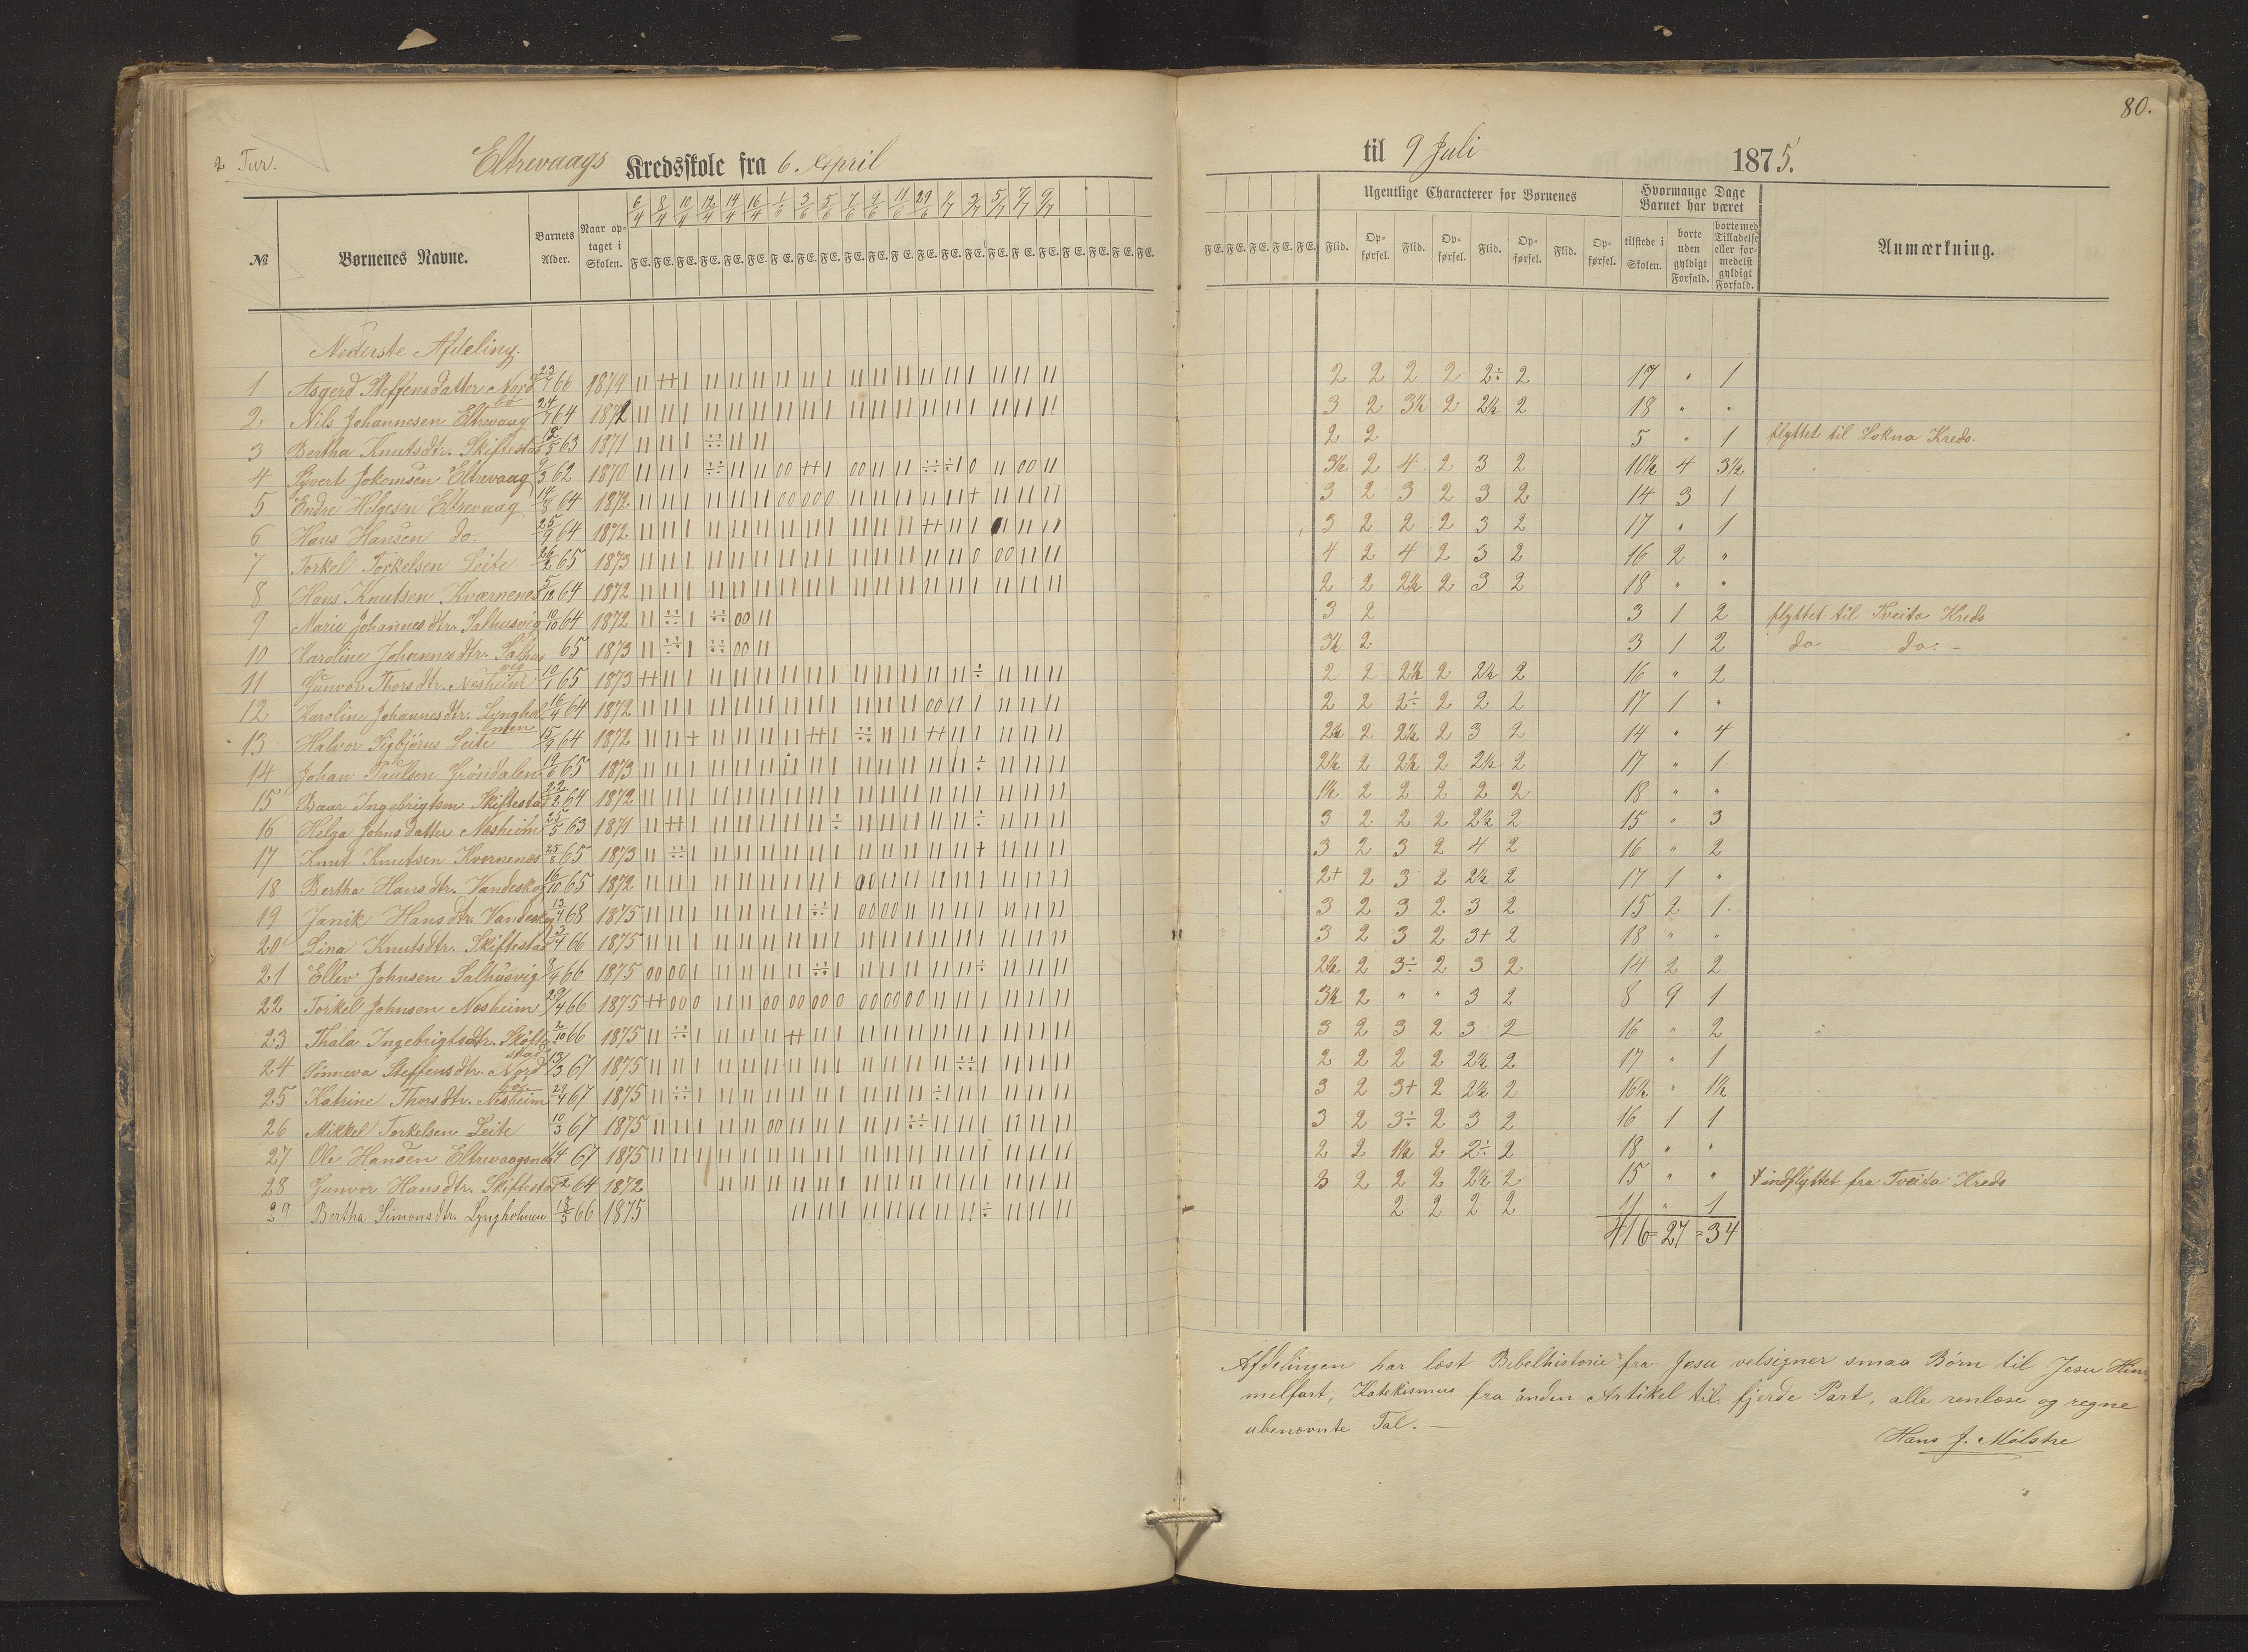 80.
2 Tur.
Eltrevaags Kredsskole fra 6. April til 9 Juli 1875.
№ Børnenes Navne. Barnets Alder. Naar optaget i Skolen. 6/4 8/4 10/4 12/4 14/4 16/4 1/6 3/6 5/6 7/6 9/6 11/6 29/6 1/7 3/7 5/7 7/7 9/7
Ugentlige Characterer for Børnenes
Flid. Opførsel. Flid. Opførsel. Flid. Opførsel. Flid. Opførsel.
Hvormange Dage Barnet har været
tilstede i Skolen. borte uden gyldigt Forfald. borte med Tilladelse eller formedelst gyldigt Forfald.
Anmærkning.
Nederste Afdeling.
1 Asgerd Steffensdatter Nordbø 23/7 66 1874 2 2 2 2 2÷ 2 17 " 1
2 Nils Johannesen Eltrevaag 24/7 64 1872 3 2 3½ 2 2½ 2 18 " "
3 Bertha Knutsdtr. Skiftestad 12/5 63 1871 2 2 5 " 1 flyttet til Sokna Kreds.
4 Syvert Jokomsen Eltrevaag 9/3 62 1870 3½ 2 4 2 3 2 10½ 4 3½
5 Endre Helgesen Eltrevaag 14/8 64 1872 3 2 3 2 3 2 14 3 1
6 Hans Hansen do. 25/9 64 1872 3 2 2 2 3 2 17 " 1
7 Torkel Torkelsen Leite 26/2 65 1873 4 2 4 2 3 2 16 2 "
8 Hans Knutsen Kværnenes 5/12 64 1872 2 2 2½ 2 3 2 18 " "
9 Marie Johannesdtr. Salhusvig 10/10 64 1872 3 2 3 1 2 flyttet til Tveita Kreds
10 Karoline Johannesdtr. Salhusvig 65 1873 3½ 2 3 1 2 do — do. —
11 Gunvor Thorsdtr. Nesheim 10/1 65 1873 2 2 2½ 2 2½ 2 16 " 2
12 Karoline Johannesdtr. Lyngholmen 16/4 64 1872 2 2 2÷ 2 2 2 17 1 "
13 Halvor Sigbjørns Leite 15/9 64 1872 2½ 2 2½ 2 3 2 14 " 4
14 Johan Paulsen Grøndalen 19/6 65 1873 2½ 2 2½ 2 2½ 2 17 " 1
15 Baar Ingebrigtsen Skiftestad 22/2 64 1872 1½ 2 2 2 2 2 18 " "
16 Helga Johnsdatter Nesheim 25/5 63 1871 3 2 2 2 2½ 2 15 " 3
17 Knut Knutsen Kvernenes 25/8 65 1873 3 2 3 2 4 2 16 " 2
18 Bertha Hansdtr. Vandeskog 16/10 65 1872 2+ 2 3 2 2½ 2 17 1 "
19 Janik Hansdtr. Vandeskog 13/4 68 1875 3 2 3 2 3 2 15 2 1
20 Lina Knutsdtr. Skiftestad 3/4 66 1875 3 2 3 2 3+ 2 18 " "
21 Ellev Johnsen Salhusvig 8/4 66 1875 2½ 2 3÷ 2 3 2 14 2 2
22 Torkel Johnsen Nesheim 29/4 66 1875 3½ 2 " " 3 2 8 9 1
23 Thala Ingebrigtsdtr. Skiftestad 2/10 66 1875 3 2 3 2 3 2 16 " 2
24 Sønneva Steffensdtr. Nordbø 13/3 67 1875 2 2 2 2 2½ 2 17 " 1
25 Katrine Thorsdtr. Nesheim 29/4 67 1875 3 2 3+ 2 2½ 2 16½ " 1½
26 Mikkel Torkelsen Leite 10/3 67 1875 3 2 3÷ 2 3 2 16 1 1
27 Ole Hansen Eltrevaagnes 1/4 67 1875 2 2 1½ 2 2÷ 2 18 " "
28 Gunvor Hansdtr. Skiftestad 64 1872 3 2 2 2 2½ 2 15 " " indflyttet fra Tveita Kreds
29 Bertha Simonsdtr. Lyngholmen 12/5 66 1875 2 2 2 2 11 " 1
416 = 27 = 34
Afdelingen har læst Bibelhistorie fra Jesu velsigner smaa Børn til Jesu Him-
melfart, Katekismus fra anden Artikel til fjerde Part, alle renlæse og regne
ubenævnte Tal. —
Hans J. Mølstre